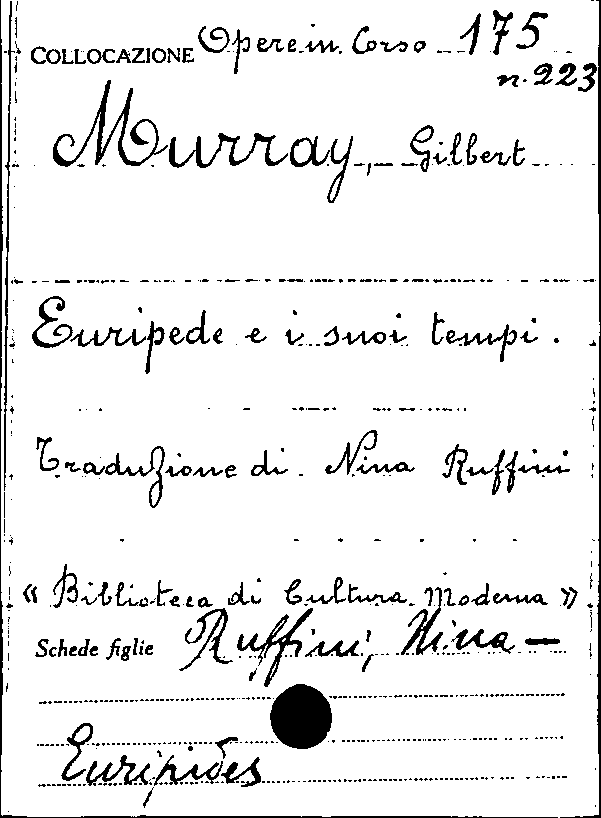 COLLOCAZIONE Opere in Corso 175
n. 223
Murray, Gilbert
Euripede e i suoi tempi.
Traduzione di Nina Ruffini
« Biblioteca di Cultura Moderna »
Schede figlie Ruffini, Nina —
Euripides